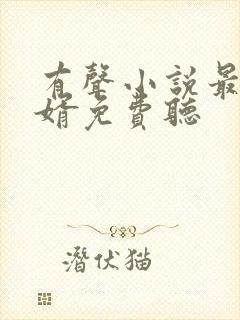 有聲小說最
婿免費聽
潛伏猫